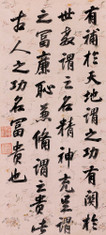 有補於天地謂之功有關
世教謂之名精神充足謂
之富廉恥兼備謂之貴此
古人之功名富貴也